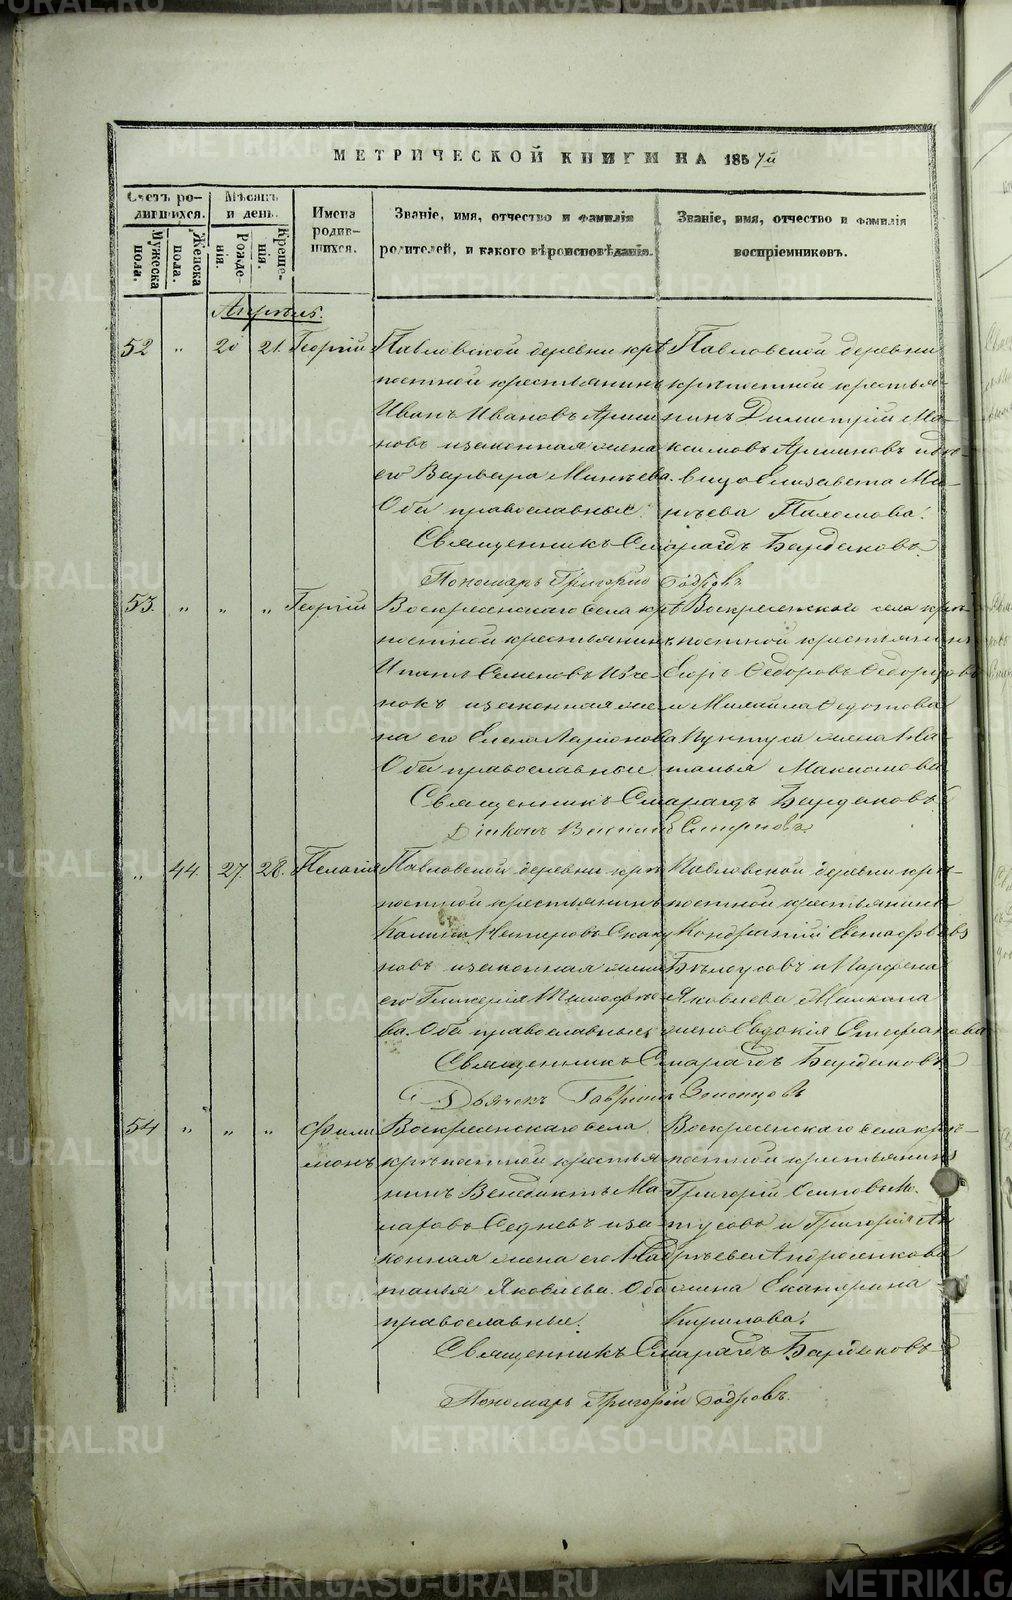 МЕТРИЧЕСКОЙ КНИГИ НА 1857й
Счетъ родившихся.
Мѣсяцъ и день.
Имена родившихся.
Званіе, имя, отчество и фамилія родителей, и какого вѣроисповѣданія.
Званіе, имя, отчество и фамилія воспріемниковъ.
Мужеска пола.
Женска пола.
Рожденія.
Крещенія.
Апрѣль.
52 " 20 21. Георгій
Павловской деревни крѣ
постной крестьянинъ
Иванъ Ивановъ Арши
новъ и законная жена
его Варвара Матвѣева.
Оба православные.
Павловской деревни
крѣпостной крестья-
нинъ Димитрій Ма-
ксимовъ Аршиновъ и дѣ-
вица Елизавета Ма-
твѣева Пахомова.
Священникъ Смарагдъ Бардаковъ.
Пономарь Григорій
53. " " " Георгій
Воскресенскаго села крѣ
постной крестьянинъ
Ипатъ Семеновъ
и законная же
на его Елена Ларіонова
Оба православные
Воскресенскаго села крѣ-
постной крестьянинъ
Егоръ Ѳедоровъ Ѳедоровъ
и Михаила Ѳедотова
жена На-
талья Максимова
Священникъ Смарагдъ Бардаковъ.
Діаконъ Василій Смирновъ.
" 44. 27. 28. Пелагія
Павловской деревни крѣ
постной крестьянинъ
и законная жена
его Гликерія Тимофѣе
ва. Оба православные
Павловской деревни крѣ-
постной крестьянинъ
Кондратій Евстафьевъ
Бѣлоусовъ и Парфена
Яковлева
жена Евдокія Стефанова
Священникъ Смарагдъ Бардаковъ
Дьячекъ Гавріилъ
54 " " " Фили
монъ
Воскресенскаго села
крѣпостной крестья
нинъ Венедиктъ Ма
каровъ Сѣдневъ и за
конная жена его На
талья Яковлева. Оба
православные.
Воскресенскаго села крѣ-
постной крестьянинъ
Григорій Осиповъ Ма-
тусовъ и Григорія Ан
дрѣева Андроенкова
жена Екатерина
Кирилова.
Священникъ Смарагдъ Бардаковъ
Пономарь Григорій
METRIKI.GASO-URAL.RU